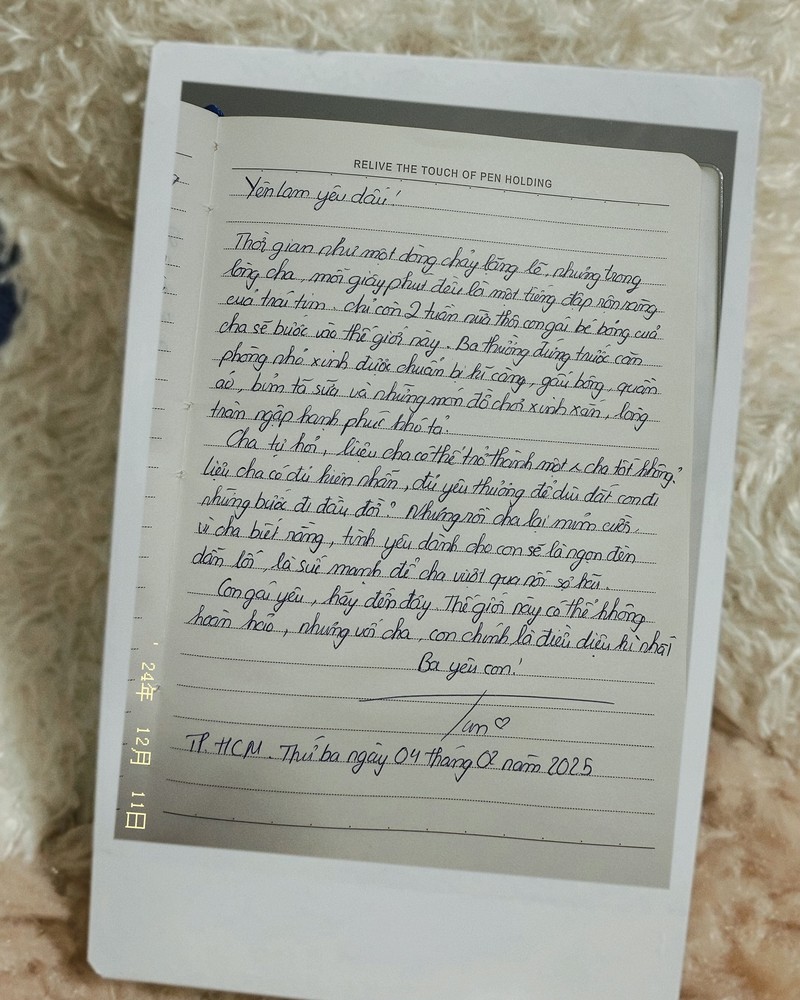 RELIVE THE TOUCH OF PEN HOLDING
Yên lam yêu dấu!
Thời gian như một dòng chảy lặng lẽ, nhưng trong
lòng cha, mỗi giây phút đều là một tiếng đập rộn ràng
của trái tim. Chỉ còn 2 tuần nữa thôi con gái bé bỏng của
cha sẽ bước vào thế giới này. Ba thường đứng trước căn
phòng nhỏ xinh được chuẩn bị kĩ càng, gấu bông, quần
áo, bỉm tã sữa và những món đồ chơi xinh xắn, lòng
tràn ngập hạnh phúc khó tả.
Cha tự hỏi, liệu cha có thể trở thành một cha tốt không?
liệu cha có đủ kiên nhẫn, đủ yêu thương để dìu dắt con đi
những bước đi đầu đời? Nhưng rồi cha lại mỉm cười,
vì cha biết rằng, tình yêu dành cho con sẽ là ngọn đèn
dẫn lối, là sức mạnh để cha vượt qua nỗi sợ hãi.
Con gái yêu, hãy đến đây. Thế giới này có thể không
hoàn hảo, nhưng với cha, con chính là điều diệu kì nhất
Ba yêu con!
TP. HCM. Thứ ba ngày 04 tháng 02 năm 2025
'24年 12月 11日